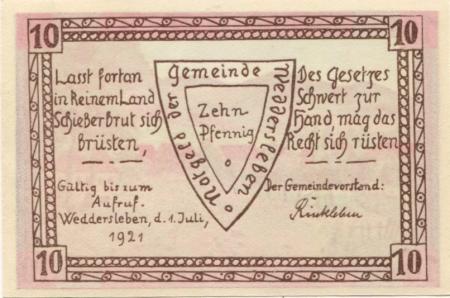 10
10
Lasst fortan
in Keinem Land
Schieberbrut sich
brüsten,
Gemeinde
Weddersleben
Notgeld der
Zehn
Pfennig
Des Gesetzes
Schwert zur
Hand, mag das
Recht sich rüsten.
Gültig bis zum
Aufruf.
Weddersleben, d. 1. Juli,
1921
Der Gemeindevorstand:
10
10